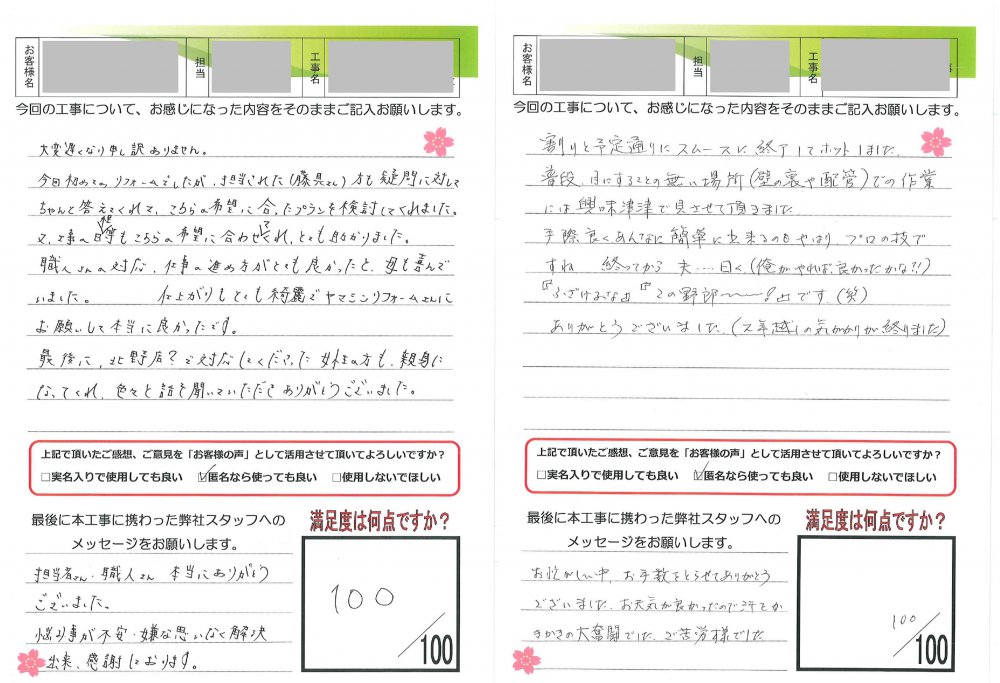 お客様名
担当
工事名
今回の工事について、お感じになった内容をそのままご記入お願いします。
大変遅くなり申し訳ありません。
今回初めてのリフォームでしたが、担当された(藤具さん)方も疑問に対して
ちゃんと答えてくれて、こちらの希望に合ったプランを検討してくれました。
又、工事の日程等もこちらの希望に合わせてくれ、とても助かりました。
職人さんの対応、仕事の進め方がとても良かったと、母も喜んで
いました。 仕上がりもとても綺麗でヤマミシリフォームさんに
お願いして本当に良かったです。
最後に、北野店?で対応してくださった女性の方も、親身に
なってくれ、色々と話を聞いていただきありがとうございました。
上記で頂いたご感想、ご意見を「お客様の声」として活用させて頂いてよろしいですか?
□実名入りで使用しても良い ☑匿名なら使っても良い □使用しないでほしい
最後に本工事に携わった弊社スタッフへの
メッセージをお願いします。
担当者さん・職人さん 本当にありがとう
ございました。
悩み事が不安・嫌な思いなく解決
出来、感謝しております。
満足度は何点ですか?
100
/100
お客様名
担当
工事名
今回の工事について、お感じになった内容をそのままご記入お願いします。
割りと予定通りにスムースに終了してホットしました。
普段、目にすることの無い場所(壁の裏や配管)での作業
には興味津津で見させて頂きました
手際良くあんなに簡単に出来るのもやはりプロの技で
すね 終ってから夫…曰く(俺がやれば良かったかな?!)
『ふざけるなよ』『この野郎〜〜!』です。(笑)
ありがとうございました。(2年越しの気がかりが終りました)
上記で頂いたご感想、ご意見を「お客様の声」として活用させて頂いてよろしいですか?
□実名入りで使用しても良い ☑匿名なら使っても良い □使用しないでほしい
最後に本工事に携わった弊社スタッフへの
メッセージをお願いします。
お忙がしい中、お手数をとらせてありがとう
ございました。お天気が良かったので汗をか
きかきの大奮闘でした。ご苦労様でした
満足度は何点ですか?
100
/100